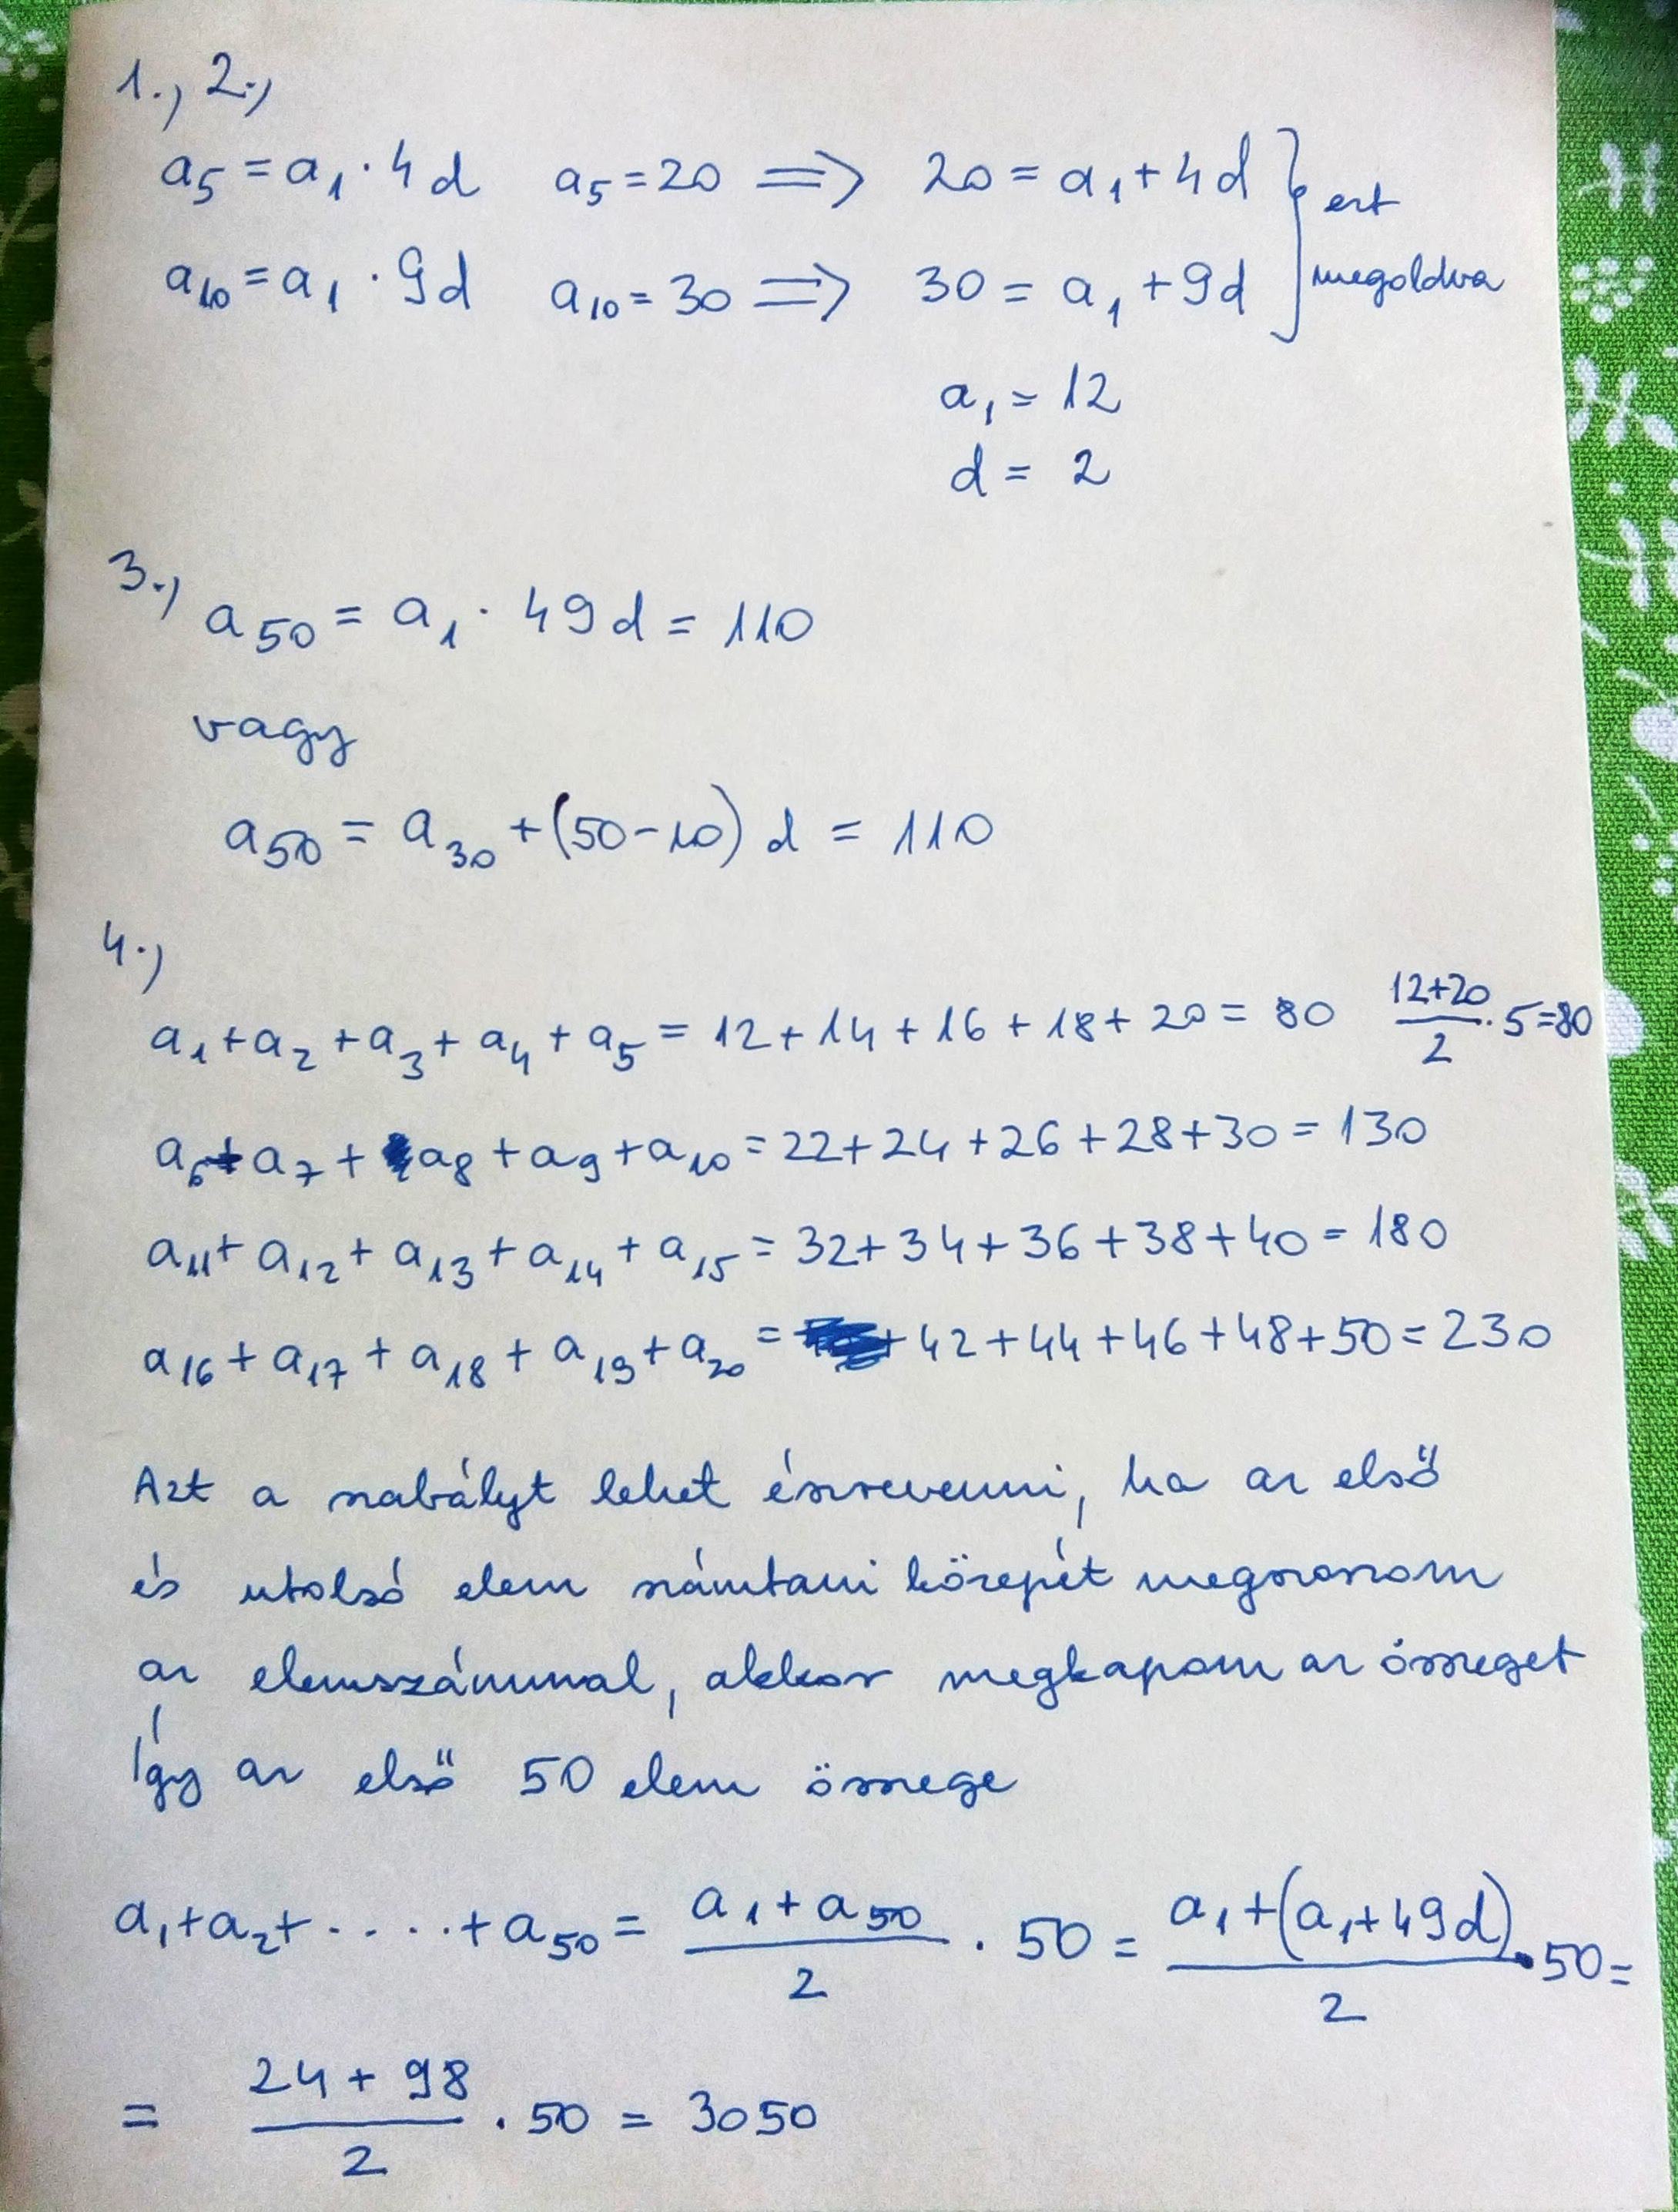 1.), 2.)
a₅ = a₁ · 4d   a₅ = 20 ⟹ 20 = a₁ + 4d } ezt
a₁₀ = a₁ · 9d   a₁₀ = 30 ⟹ 30 = a₁ + 9d } megoldva
a₁ = 12
d = 2
3.) a₅₀ = a₁ · 49d = 110
vagy
a₅₀ = a₃₀ + (50-10) d = 110
4.)
a₁ + a₂ + a₃ + a₄ + a₅ = 12 + 14 + 16 + 18 + 20 = 80   (12+20)/2 · 5 = 80
a₆ + a₇ + a₈ + a₉ + a₁₀ = 22 + 24 + 26 + 28 + 30 = 130
a₁₁ + a₁₂ + a₁₃ + a₁₄ + a₁₅ = 32 + 34 + 36 + 38 + 40 = 180
a₁₆ + a₁₇ + a₁₈ + a₁₉ + a₂₀ = 42 + 44 + 46 + 48 + 50 = 230
Azt a szabályt lehet észrevenni, ha az első
és utolsó elem számtani közepét megszorzom
az elemszámmal, akkor megkapom az összeget
Így az első 50 elem összege
a₁ + a₂ + . . . . . + a₅₀ = (a₁ + a₅₀)/2 · 50 = (a₁ + (a₁ + 49d))/2 · 50 =
= (24 + 98)/2 · 50 = 3050